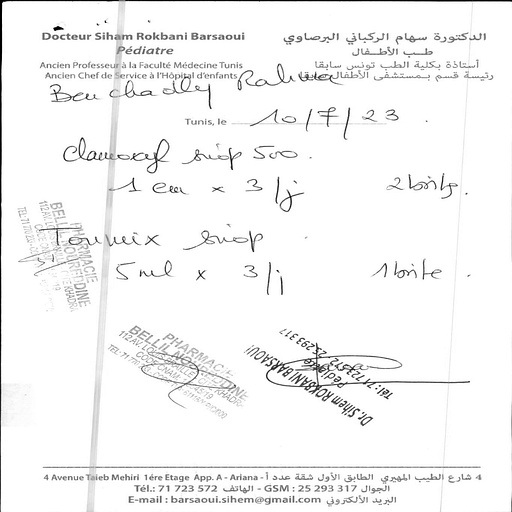 Docteur Siham Rokbani Barsaoui
Pédiatre
Ancien Professeur à la Faculté Médecine Tunis
Ancien Chef de Service à l'Hôpital d'enfants
الدكتورة سهام الركباني البرصاوي
طب الأطفال
أستاذة بكلية الطب تونس سابقا
رئيسة قسم بمستشفى الأطفال سابقا
Ben chadly Rahma
Tunis, le 10/7/23.
Clamoxyl sirop 500.
1 cm x 3/j 2 boites.
sirop
5 ml x 3/j 1 boite.
PHARMACIE
BELLIL NOUREDDINE
PHARMACIE
BELLIL NOUREDDINE
Dr. Sihem ROKBANI BARSAOUI
Pédiatre
Tél: 71 723 572 - 25 293 317
4 Avenue Taieb Mehiri 1ére Etage App. A - Ariana - 4 شارع الطيب المهيري الطابق الأول شقة عدد أ
Tél.: 71 723 572 الهاتف - GSM : 25 293 317 الجوال
E-mail : barsaoui.sihem@gmail.com البريد الألكتروني